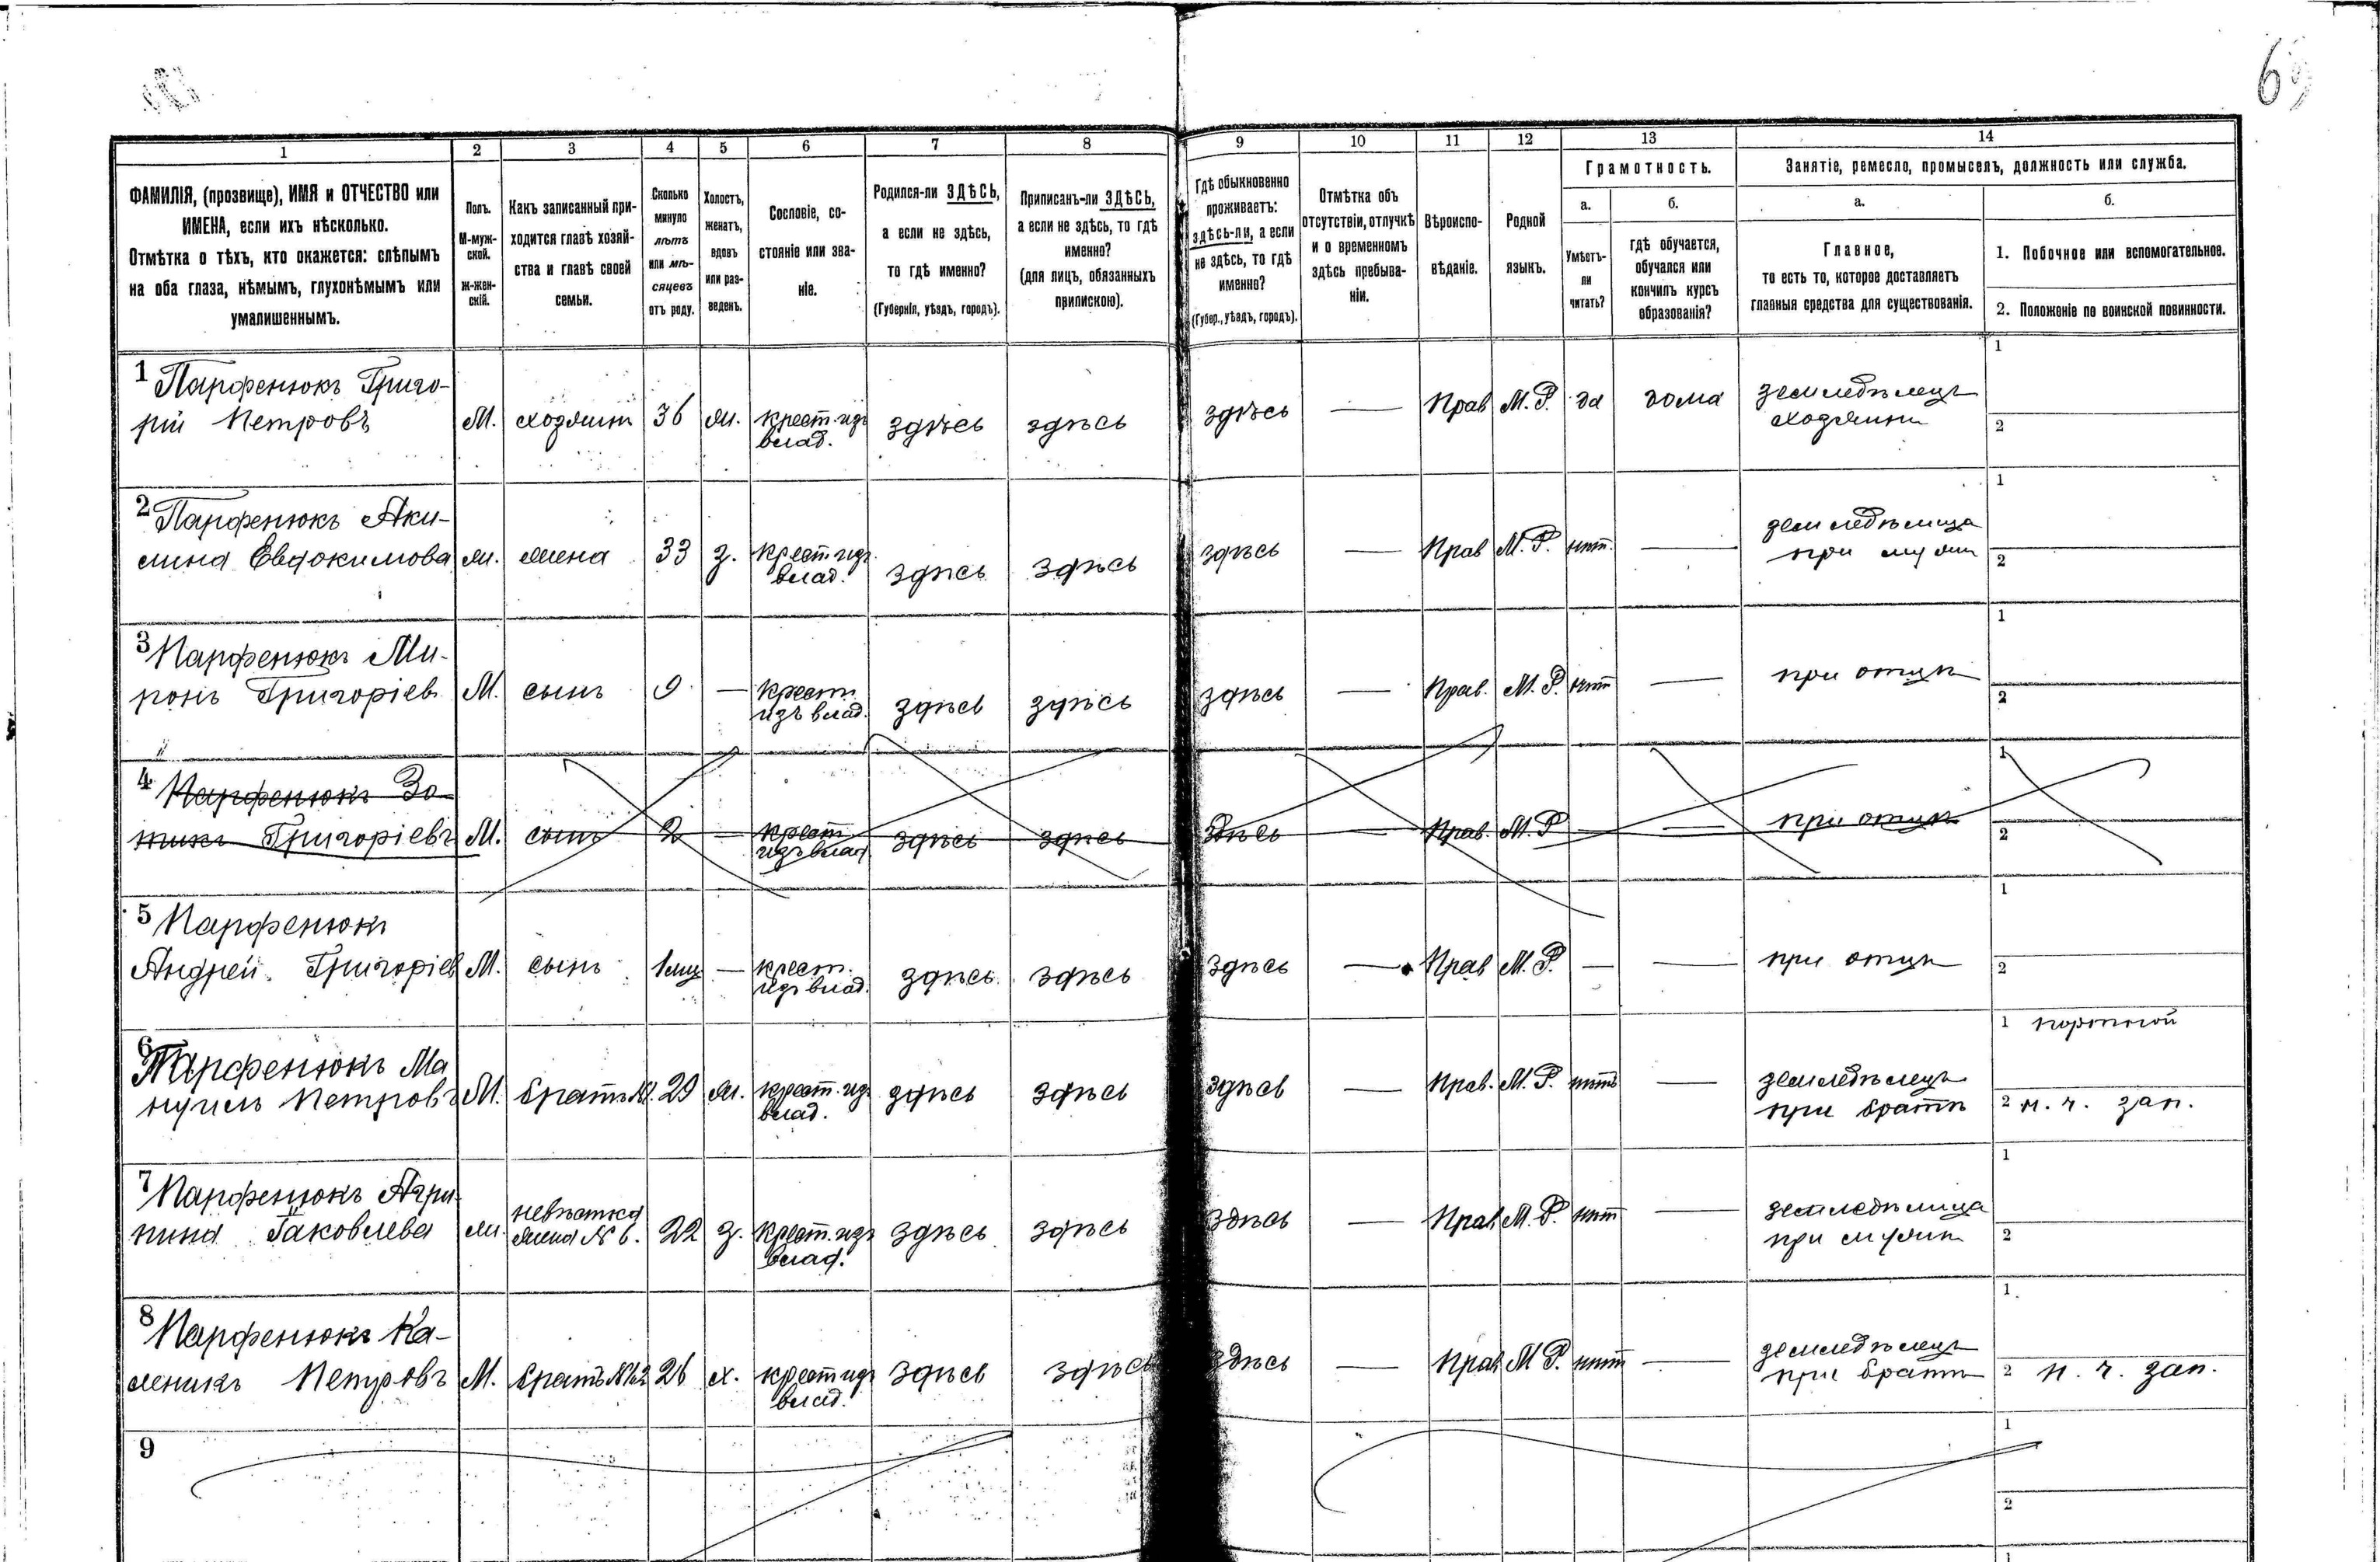 69
1 2 3 4 5 6 7 8 9 10 11 12 13 14
ФАМИЛІЯ, (прозвище), ИМЯ и ОТЧЕСТВО или
ИМЕНА, если ихъ нѣсколько.
Отмѣтка о тѣхъ, кто окажется: слѣпымъ
на оба глаза, нѣмымъ, глухонѣмымъ или
умалишеннымъ.
Полъ.
М-муж-
ской.
Ж-жен-
скій.
Какъ записанный при-
ходится главѣ хозяй-
ства и главѣ своей
семьи.
Сколько
минуло
лѣтъ
или мѣ-
сяцевъ
отъ роду.
Холостъ,
женатъ,
вдовъ
или раз-
веденъ.
Сословіе, со-
стояніе или зва-
ніе.
Родился-ли ЗДѢСЬ,
а если не здѣсь,
то гдѣ именно?
(Губернія, уѣздъ, городъ).
Приписанъ-ли ЗДѢСЬ,
а если не здѣсь, то гдѣ
именно?
(для лицъ, обязанныхъ
припискою).
Гдѣ обыкновенно
проживаетъ:
здѣсь-ли, а если
не здѣсь, то гдѣ
именно?
(Губер., уѣздъ, городъ).
Отмѣтка объ
отсутствіи, отлучкѣ
и о временномъ
здѣсь пребыва-
ніи.
Вѣроиспо-
вѣданіе.
Родной
языкъ.
Грамотность.
а.
Умѣетъ-
ли
читать?
б.
гдѣ обучается,
обучался или
кончилъ курсъ
образованія?
Занятіе, ремесло, промыселъ, должность или служба.
а.
Главное,
то есть то, которое доставляетъ
главныя средства для существованія.
б.
1. Побочное или вспомогательное.
2. Положеніе по воинской повинности.
1 Парфенюкъ Григо-
рій Петровъ М. хозяинъ 36 ж. крест. изъ здѣсь здѣсь здѣсь — Прав М.Р. да дома земледѣлецъ 1
влад. хозяинъ 2
2 Парфенюкъ Аки-
лина Евдокимова ж. жена 33 з. крест. изъ здѣсь здѣсь здѣсь — Прав М.Р. нѣт. — земледѣлица 1
влад. при мужѣ 2
3 Парфенюкъ Ми-
ронъ Григоріев М. сынъ 9 — крест. здѣсь здѣсь здѣсь — Прав. М.Р. нѣт — при отцѣ 1
изъ влад. 2
4 Парфенюкъ Зо-
тикъ Григоріевъ М. сынъ 2 — крест. здѣсь здѣсь здѣсь — Прав. М.Р — — при отцѣ 1
изъ влад. 2
5 Парфенюкъ
Андрей Григоріев М. сынъ 1 мц — крест. здѣсь здѣсь здѣсь — Прав М.Р. — — при отцѣ 1
изъ влад. 2
6 Парфенюкъ Ма
нуилъ Петровъ М. братъ №1. 29 ж. крест. изъ здѣсь здѣсь здѣсь — Прав. М.Р. нѣтъ — земледѣлецъ 1 портной
влад. при братѣ 2 н. ч. зап.
7 Парфенюкъ Агри
пина Іаковлева ж. невѣстка 22 з. крест. изъ здѣсь здѣсь здѣсь — Прав М.Р. нѣт — земледѣлица 1
жена № 6. влад. при мужѣ 2
8 Парфенюкъ Ка-
леникъ Петровъ М. братъ 26 х. крест изъ здѣсь здѣсь здѣсь — Прав М Р. нѣт — земледѣлецъ 1
влад. при братѣ 2 н. ч. зап.
9 1
2
1